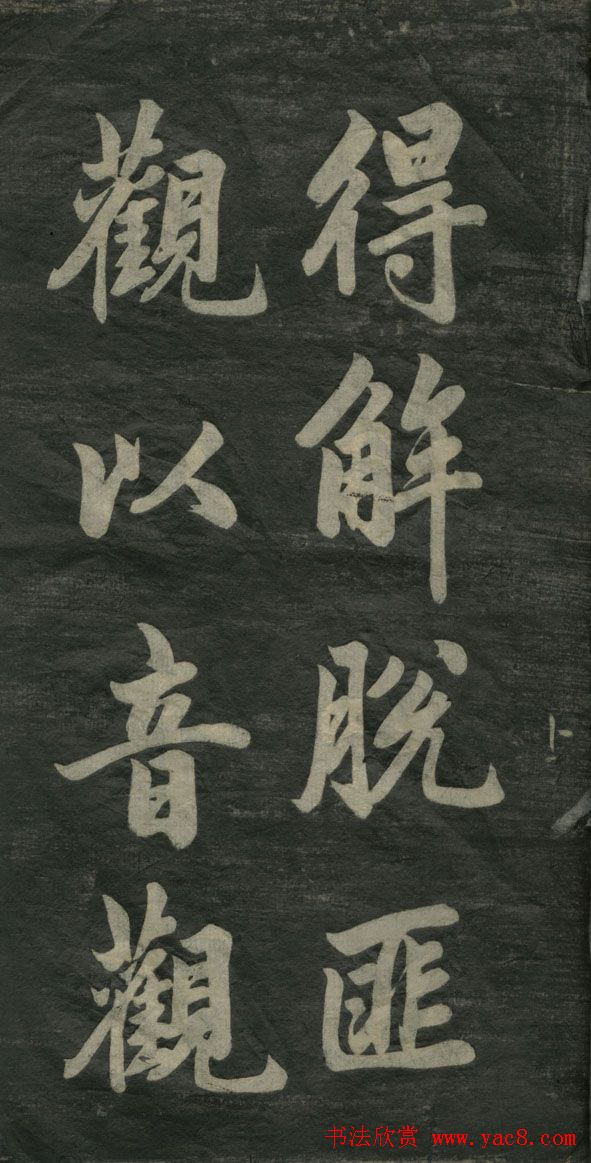 得解脫匪
觀以音觀
书法欣赏 www.yac8.com